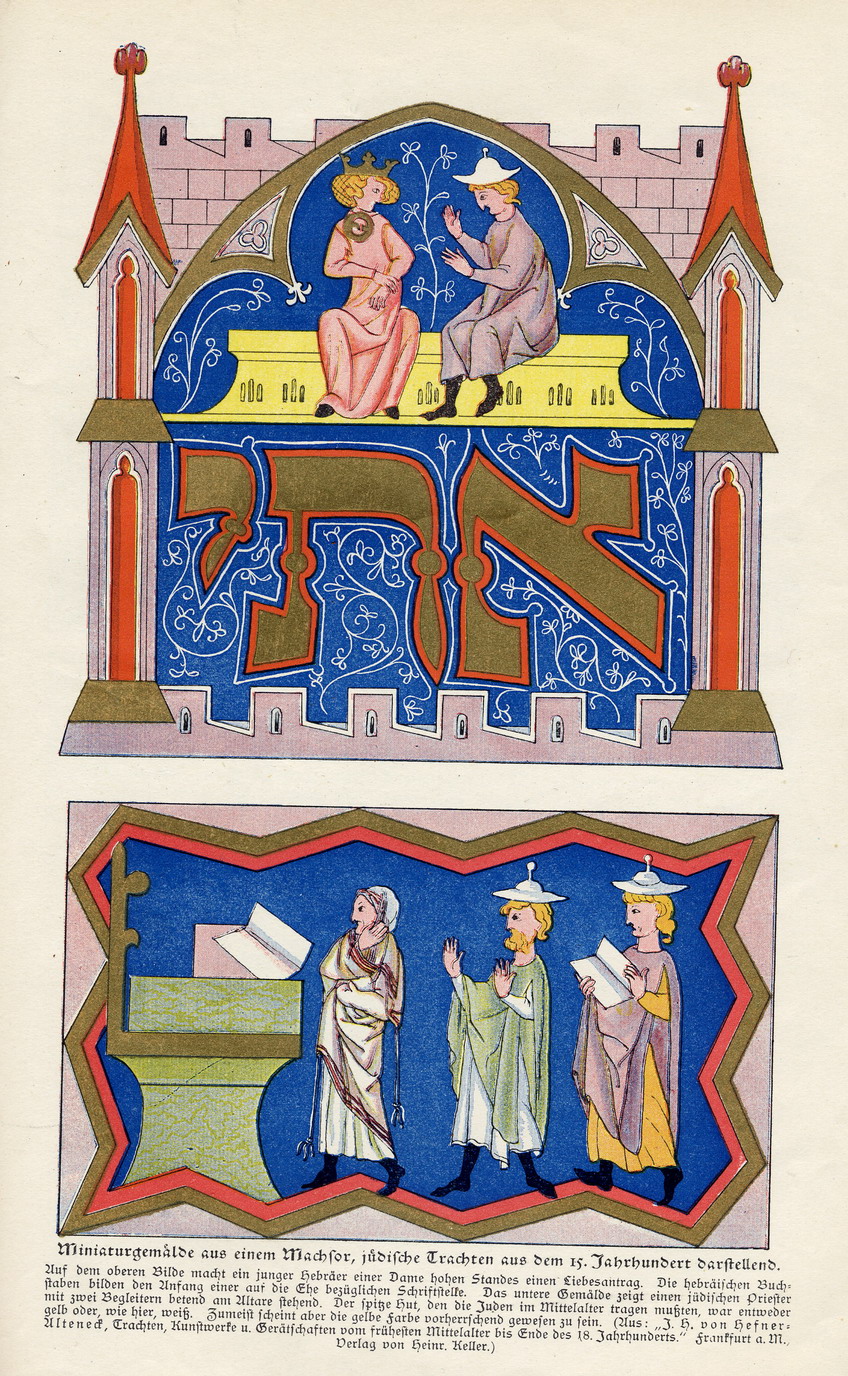 אתי
Miniaturgemälde aus einem Machsor, jüdische Trachten aus dem 15. Jahrhundert darstellend.
Auf dem oberen Bilde macht ein junger Hebräer einer Dame hohen Standes einen Liebesantrag. Die hebräischen Buch-
staben bilden den Anfang einer auf die Ehe bezüglichen Schriftstelle. Das untere Gemälde zeigt einen jüdischen Priester
mit zwei Begleitern betend am Altare stehend. Der spitze Hut, den die Juden im Mittelalter tragen mußten, war entweder
gelb oder, wie hier, weiß. Zumeist scheint aber die gelbe Farbe vorherrschend gewesen zu sein. (Aus: „J. H. von Hefner-
Alteneck, Trachten, Kunstwerke u. Gerätschaften vom frühesten Mittelalter bis Ende des 18. Jahrhunderts.“ Frankfurt a. M.,
Verlag von Heinr. Keller.)